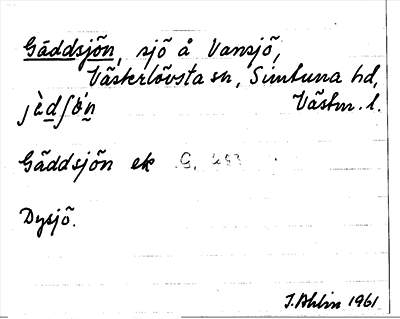 Gäddsjön, sjö å Vansjö,
Västerlövsta sn, Simtuna hd,
Västm. l.
Gäddsjön ek G.
Dysjö.
I. Ahlin 1961